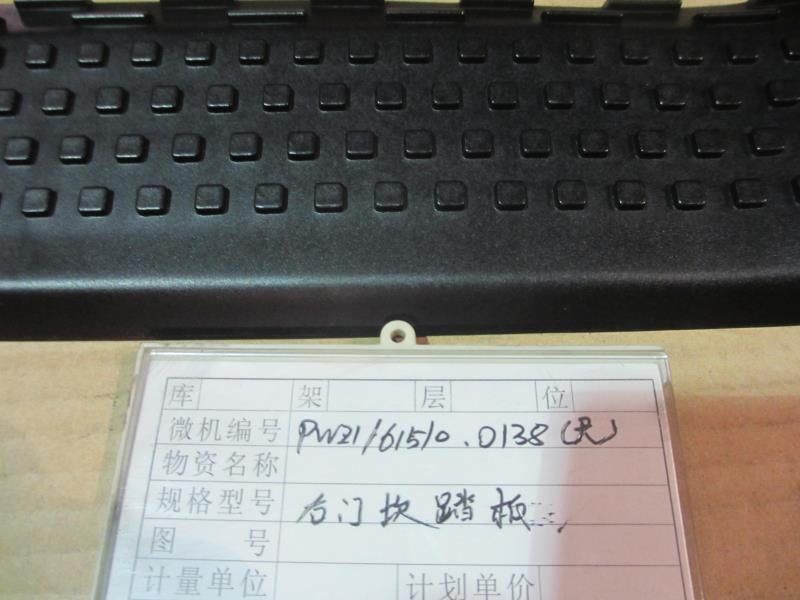 库 架 层 位
微机编号 PWZ1/61510.0138(天)
物资名称
规格型号 右门坎踏板
图 号
计量单位 计划单价